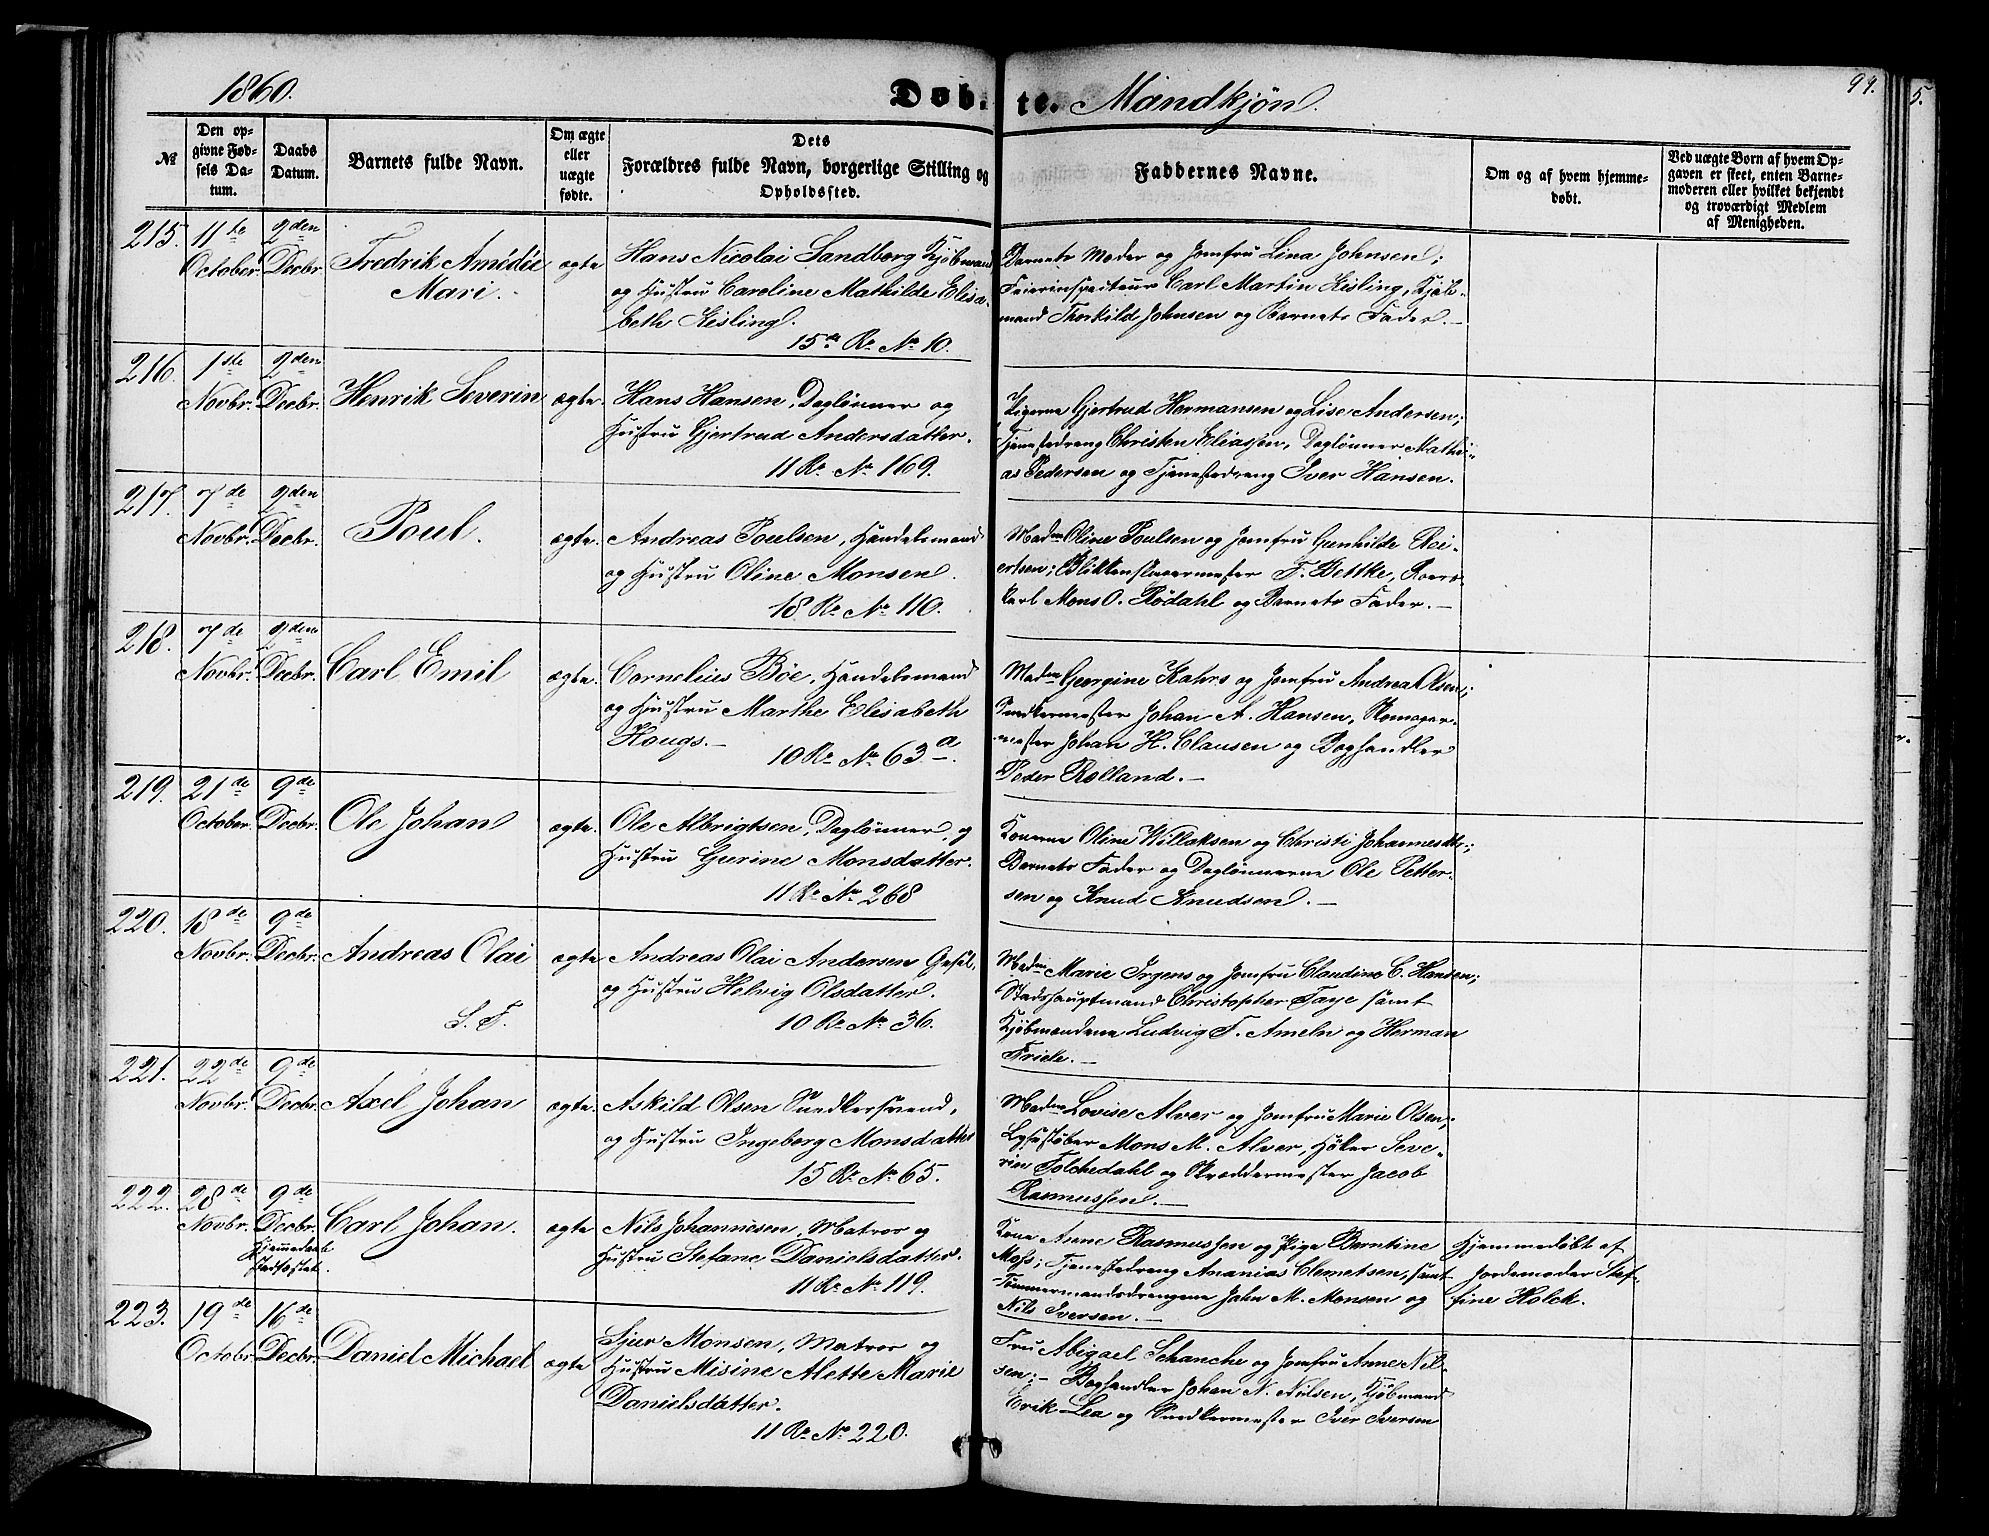 1860.
Døbte. Mandkjøn.
99.
5.
№
Den op-
givne Fød-
sels Da-
tum.
Daabs
Datum.
Barnets fulde Navn.
Om ægte
eller
uægte
fødte.
Dets
Forældres fulde Navn, borgerlige Stilling og
Opholdssted.
Faddernes Navne.
Om og af hvem hjemme-
døbt.
Ved uægte Børn af hvem Op-
gaven er skeet, enten Barne-
moderen eller hvilket bekjendt
og troværdigt Medlem
af Menigheden.
215. 11te October 2den Decbr.
Fredrik Amédée
Mari.
ægte
Hans Nicolai Sandberg Kjøbmand
og Hustru Caroline Mathilde Elisa-
beth Kisling.
15de R. No 10.
Barnets Moder og Jomfru Lina Johnsen;
Feierinspecteur Carl Martin Kisling, Kjøb-
mand Thorkild Johnsen og Barnets Fader.
216. 1ste Novbr. 2den Decbr.
Henrik Severin
ægte.
Hans Hansen, Daglønner og
Hustru Gjertrud Andersdatter.
11 R. No 169.
Pigerne Gjertrud Hermansen og Lise Andersen;
Tjenestedreng Christen Eliassen, Daglønner Mathi-
as Pedersen og Tjenestedreng Iver Hansen.
217. 7de Novbr. 2den Decbr.
Poul.
ægte.
Andreas Poulsen, Handelsmand
og Hustru Oline Monsen.
18 R. No 110.
Madm Oline Poulsen og Jomfru Gunhilde Rei-
ertsen; Blikkenslagermester F. Bettke, Roers-
karl Mons O. Rødahl og Barnets Fader.
218. 7de Novbr. 2den Decbr.
Carl Emil
ægte.
Cornelius Böe, Handelsmand
og Hustru Marthe Elisabeth
Hougs.
10 R. No 63 a.
Madm Georgine Kahrs og Jomfru Andrea Olsen;
Snedkermester Johan A. Hansen, Skomager-
mester Johan H. Clausen og Boghandler
Peder Rolland.
219. 21de October. 9de Decbr.
Ole Johan
ægte.
Ole Albrigtsen, Daglønner, og
Hustru Gurine Monsdatter.
11 R. No 268
Konerne Oline Willaksen og Christi Johannesdtr;
Barnets Fader og Daglønnerne Ole Petter-
sen og Knud Knudsen.
220. 18de Novbr. 9de Decbr.
Andreas Olai
S. F.
ægte
Andreas Olai Andersen Gesel,
og Hustru Helvig Olsdatter.
10 R. No 36.
Madm Marie Irgens og Jomfru Claudine C. Hansen;
Stadshauptmand Christopher Faye samt
Kjøbmændene Ludvig F. Ameln og Herman
Friele.
221. 22de Novbr. 9de Decbr.
Axel Johan
ægte.
Askild Olsen Snedkersvend,
og Hustru Ingeborg Monsdatter
15 R. No 65.
Madm Lovise Alver og Jomfru Marie Olsen;
Lysestøber Mons M. Alver, Høker Seve-
rin Tolchedahl og Skreddermester Jacob
Rasmussen.
222. 28de Novbr. 9de Decbr. Hjemmedaab
stadfæstet.
Carl Johan.
ægte
Nils Johannesen, Matros og
Hustru Stefane Danielsdatter.
11 R. No 119.
Kone Anne Rasmussen og Pige Berntine
Moss; Tjenestedreng Ananias Clemetsen, samt
Tømmermandsdrengene John M. Monsen og
Nils Iversen.
Hjemmedøbt af
Jordemoder Stef-
fine Holck.
223. 19de Octobr. 16de Decbr.
Daniel Michael
ægte
Sjur Monsen, Matros og
Hustru Misine Alette Marie
Danielsdatter.
11 R. No 220.
Fru Abigael Schanche og Jomfru Anne Nil-
sen; Boghandler Johan N. Nilsen, Kjøbmand
Erik Lea og Snedkermester Iver Iversen